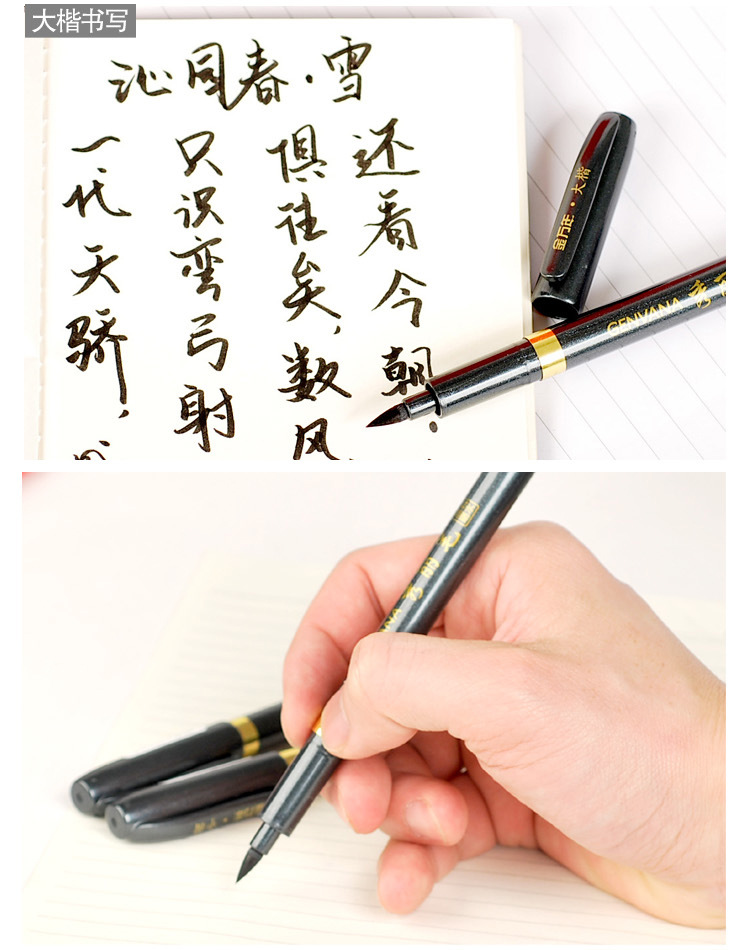 大楷书写
沁园春·雪
一代天骄，
只识弯弓射
俱往矣，数风
还看今朝。
金万年·大楷
GENVANA 秀
秀丽笔